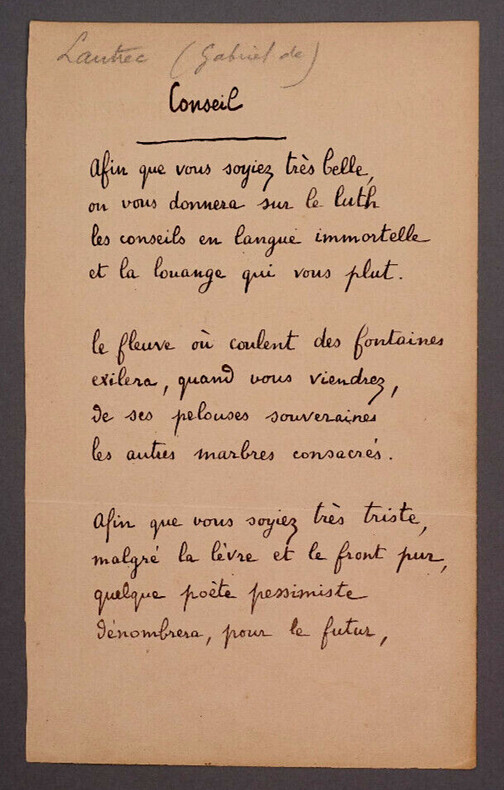 Lautrec (Gabriel de)
Conseil
Afin que vous soyiez très belle,
on vous donnera sur le luth
les conseils en langue immortelle
et la louange qui vous plut.
le fleuve où coulent des fontaines
exilera, quand vous viendrez,
de ses pelouses souveraines
les autres marbres consacrés.
Afin que vous soyiez très triste,
malgré la lèvre et le front pur,
quelque poète pessimiste
dénombrera, pour le futur,